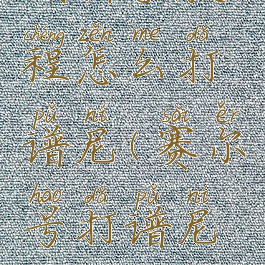 chéng zěn me dǎ
程怎么打
pǔ ní sài ěr
谱尼(赛尔
hào dǎ pǔ ní
号打谱尼